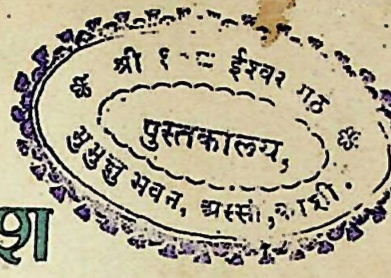 श्री १०८ ईश्वर मठ
पुस्तकालय,
मुमुक्षु भवन, अस्सी, काशी.
श